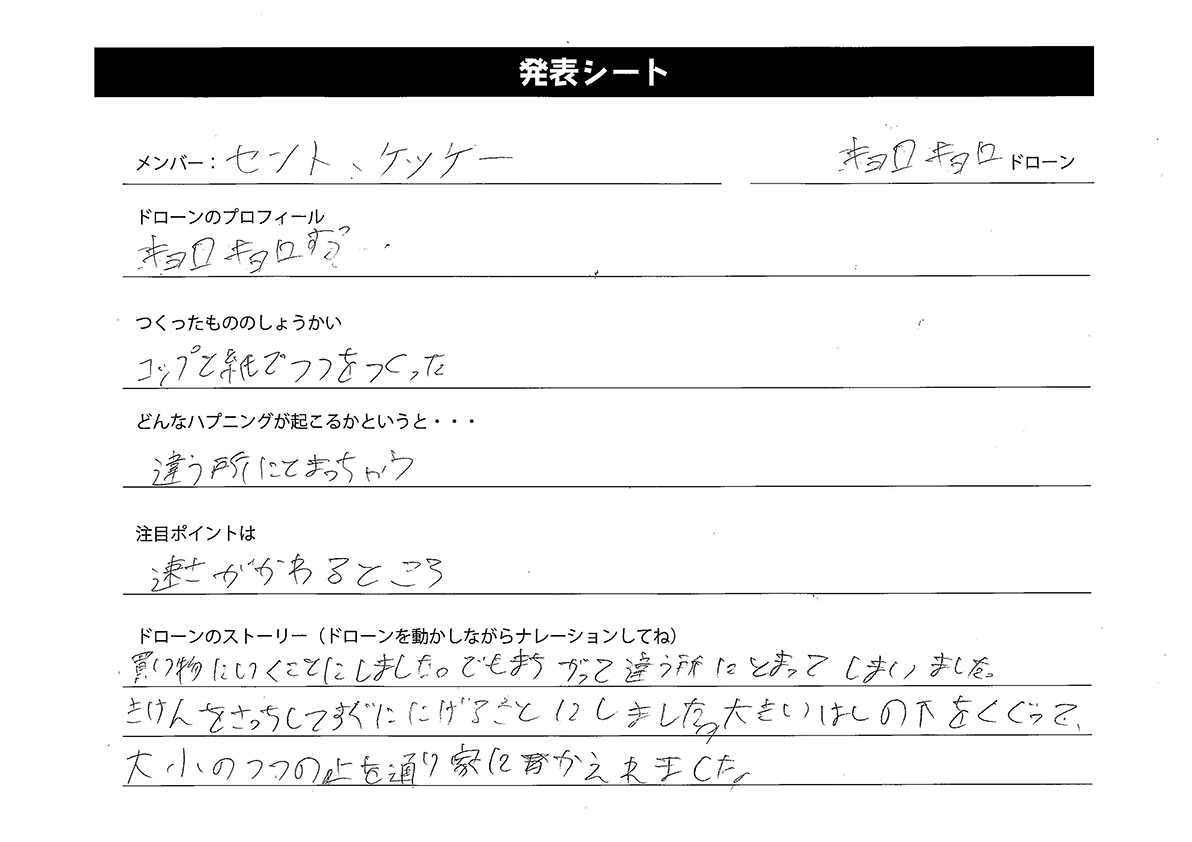 発表シート
メンバー：セント、ケッケー
キョロキョロドローン
ドローンのプロフィール
キョロキョロする・・
つくったもののしょうかい
コップと紙でつつをつくった
どんなハプニングが起こるかというと・・・
違う所にとまっちゃう
注目ポイントは
速さがかわるところ
ドローンのストーリー（ドローンを動かしながらナレーションしてね）
買い物にいくことにしました。でもまちがって違う所にとまってしまいました。
きけんをさっちしてすぐににげることにしました。大きいはしの下をくぐって、
大小のつつの上を通り家にかえれました。